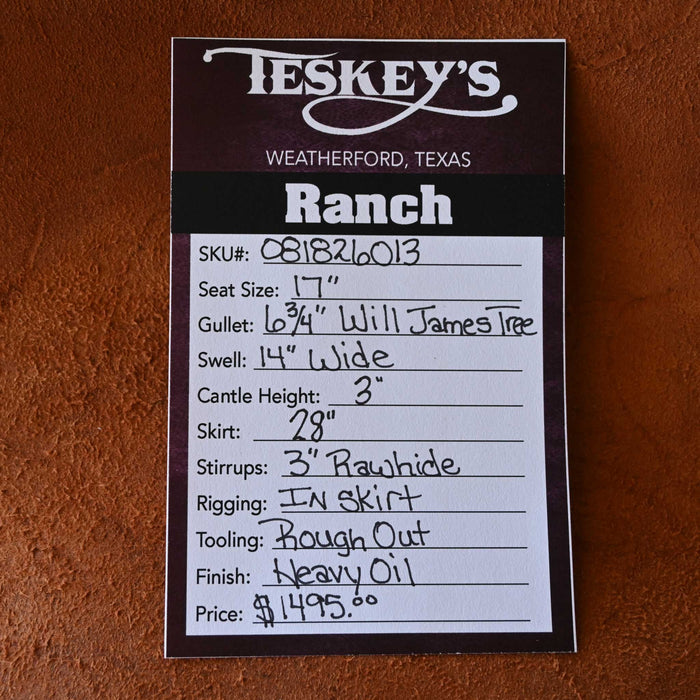 TESKEY'S
WEATHERFORD, TEXAS
Ranch
SKU#: 081826013
Seat Size: 17"
Gullet: 6 3/4" Will James Tree
Swell: 14" Wide
Cantle Height: 3"
Skirt: 28"
Stirrups: 3" Rawhide
Rigging: In Skirt
Tooling: Rough Out
Finish: Heavy Oil
Price: $1495.00